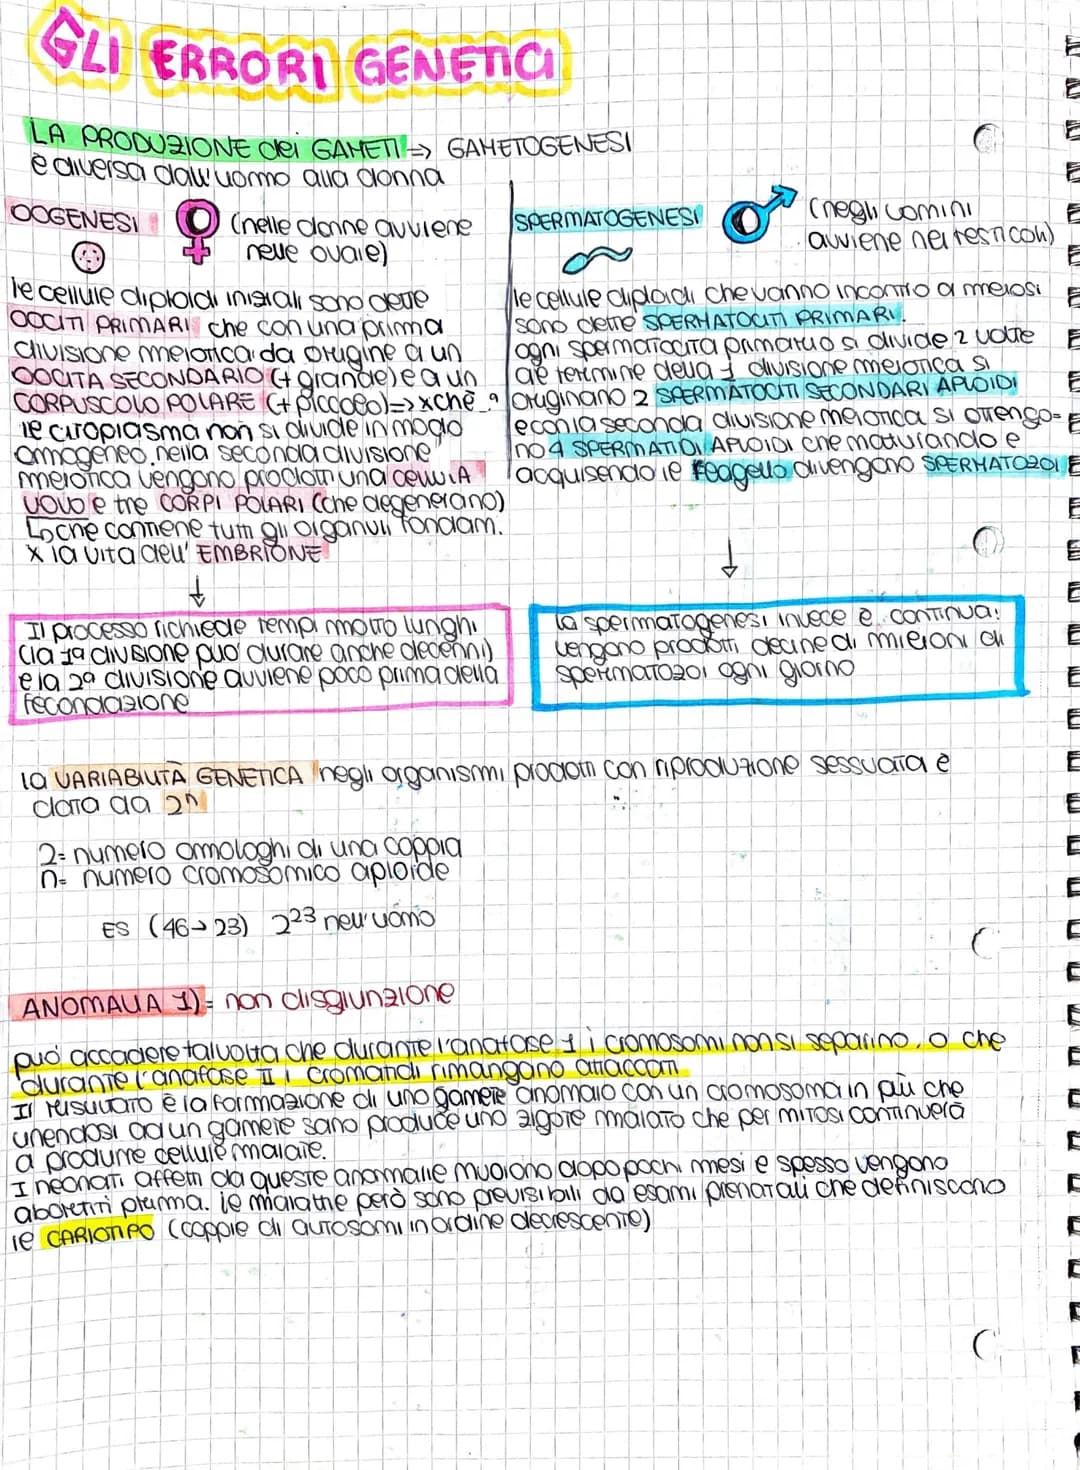 GLI ERRORI GENETICI
LA PRODUZIONE dei GAMETI => GAMETOGENESI
è diversa dall'uomo alla donna
OOGENESI (nelle donne avviene
nelle ovaie)
le cellule diploidi iniziali sono dette
OOCITI PRIMARI che con una prima
divisione meiotica da origine a un
OOCITA SECONDARIO (+ grande) e a un
CORPUSCOLO POLARE (+ piccolo) => xchè
il citoplasma non si divide in modo
omogeneo. nella seconda divisione
meiotica vengono prodotti una cellula
UOVO e tre CORPI POLARI (che degenerano)
↳ che contiene tutti gli organuli fondam.
x la vita dell' EMBRIONE
↓
Il processo richiede tempi molto lunghi
(la 1ª divisione può durare anche decenni)
e la 2ª divisione avviene poco prima della
fecondazione
SPERMATOGENESI (negli uomini
avviene nei testicoli)
le cellule diploidi che vanno incontro a meiosi
sono dette SPERMATOCITI PRIMARI.
ogni spermatocita primario si divide 2 volte
al termine della 1 divisione meiotica si
originano 2 SPERMATOCITI SECONDARI APLOIDI
e con la seconda divisione meiotica si ottengo=
no 4 SPERMATIDI APLOIDI che maturando e
acquisendo il flagello divengono SPERMATOZOI
↓
la spermatogenesi invece è continua:
vengono prodotti decine di milioni di
spermatozoi ogni giorno
la VARIABILITÀ GENETICA negli organismi prodotti con riproduzione sessuata è
data da 2ⁿ
2= numero omologhi di una coppia
n= numero cromosomico aploide
ES (46→23) 2²³ nell'uomo
ANOMALIA 1)= non disgiunzione
può accadere talvolta che durante l'anafase 1 i cromosomi non si separino, o che
durante l'anafase II i cromatidi rimangano attaccati
Il risultato è la formazione di uno gamete anomalo con un cromosoma in più che
unendosi ad un gamete sano produce uno zigote malato che per mitosi continuerà
a produrre cellule malate.
I neonati affetti da queste anomalie muoiono dopo pochi mesi e spesso vengono
abortiti prima. le malattie però sono previsibili da esami prenatali che definiscono
il CARIOTIPO (coppie di autosomi in ordine decrescente)